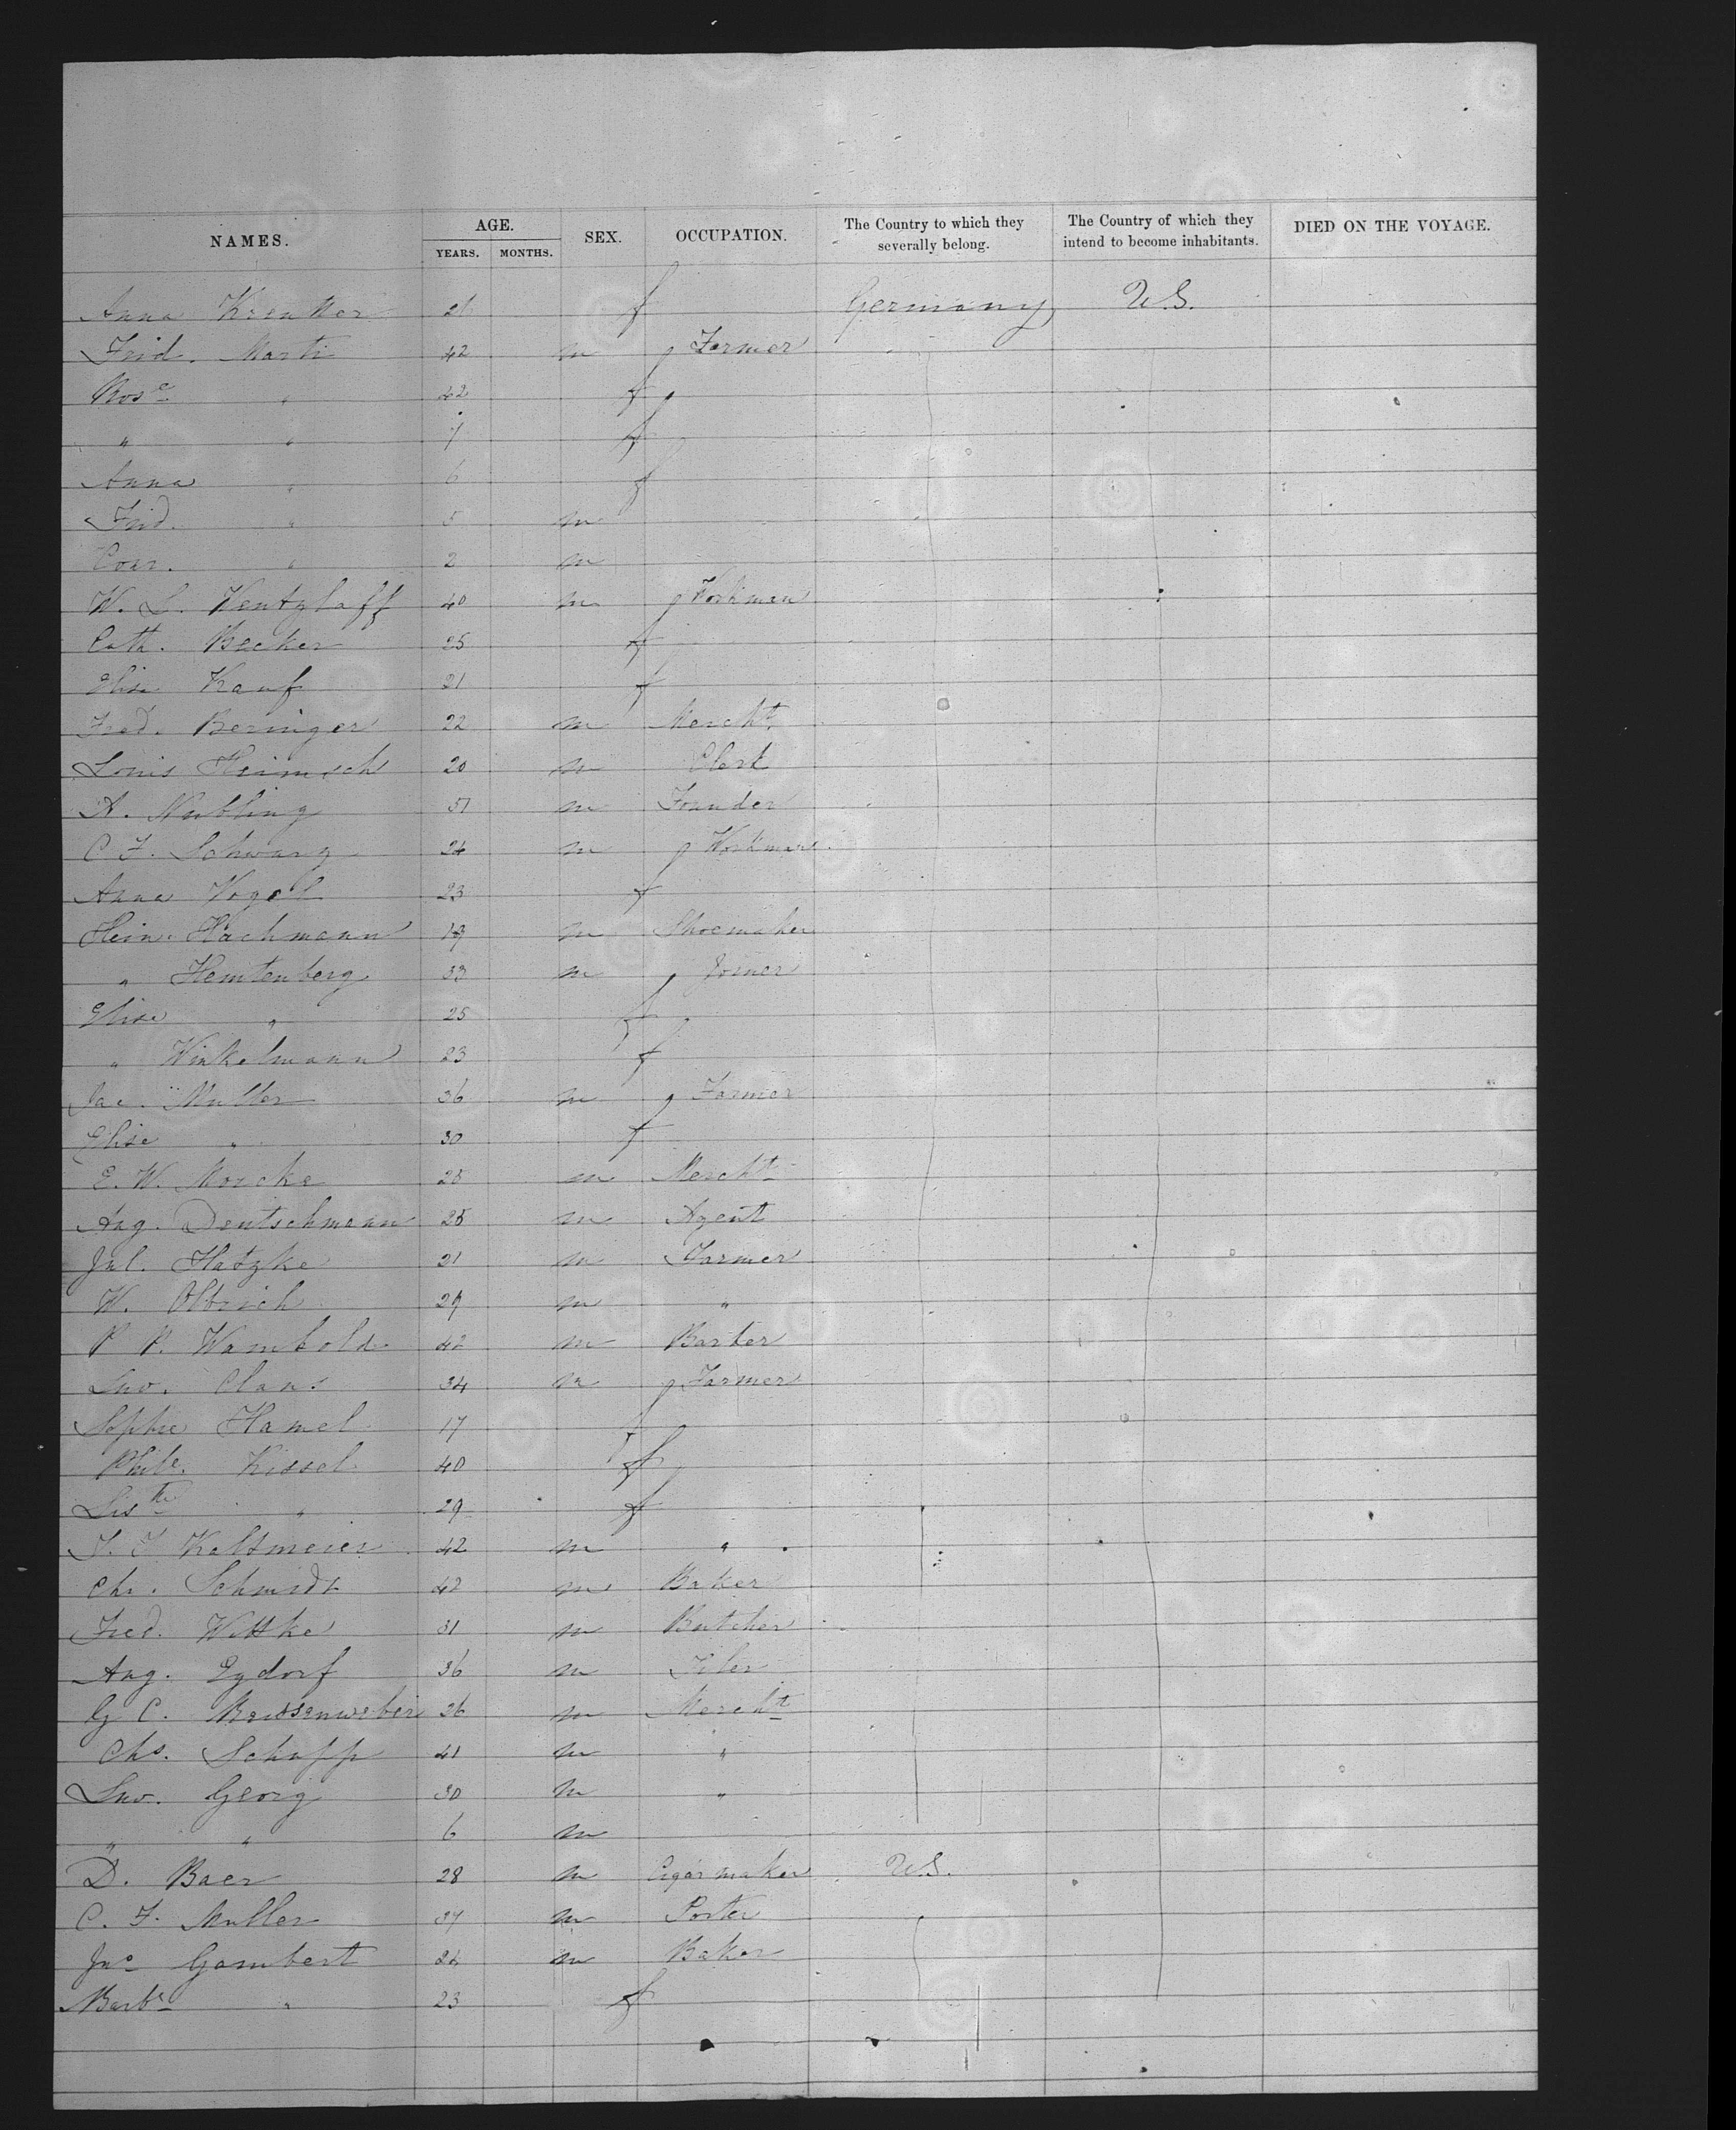 NAMES. AGE. SEX. OCCUPATION. The Country to which they severally belong. The Country of which they intend to become inhabitants. DIED ON THE VOYAGE.
YEARS. MONTHS.
Anna 21 f Germany U.S.
Frid. Marti 42 m Farmer
Rosa " 42 f
" " 7 f
Anna " 6 f
Frid. " 5 m
" 2 m
W. L. Wentzlaff 40 m Workman
Cath. Becker 25 f
Elise Krauf 21 f
Fred. Beringer 22 m Mercht
Louis Heimsch 20 m Clerk
A. Nubling m Founder
C F. Schwarz 24 m Workman
Anna Vogel 23 f
Hein. Hachmann 19 m Shoemaker
" Hemtenberg 33 m Joiner
Elise " 25 f
" Winkelmann 23 f
Jac. Müller 36 m Farmer
Elise " 30 f
E. W. Morcke 25 m Mercht
Aug. Deutschmann 25 m Agent
Jul. Hatzke 21 m Farmer
W. Olbrich 29 m "
P. Wambold 42 m Barber
Luv. Claus 34 m Farmer
Sophie Hamel 17 f
Kissel 40 f
" 29 f
Kaltmeier 42 m "
Chr. Schmidt 42 m Baker
Fred. Wittke 31 m Butcher
Aug. Egdorf 36 m Tiler
G C. 26 m Mercht
Chs. Schupp 41 m "
Luv. Georg 30 m "
" " 6 m
D. Baer 28 m Cigarmaker U.S.
C. F. Muller 37 m Porter
Jno Gambert 24 m Baker
Barba " 23 f